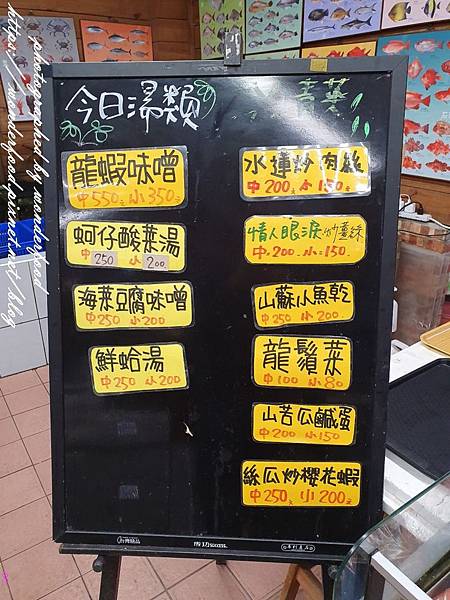 photographed by wonderfood
https://wonderfood.pixnet.net/blog
今日湯類
龍蝦味噌
中550元 小350元
蚵仔酸菜湯
中250 小200
海菜豆腐味噌
中250 小200
鮮蛤湯
中250 小200
青菜
水蓮炒肉絲
中200 小150元
情人眼淚炒薑絲
中200 小150
山蘇小魚乾
中250 小200
龍鬚菜
中100 小80
山苦瓜鹹蛋
中200 小150
絲瓜炒櫻花蝦
中250元 小200元
成功